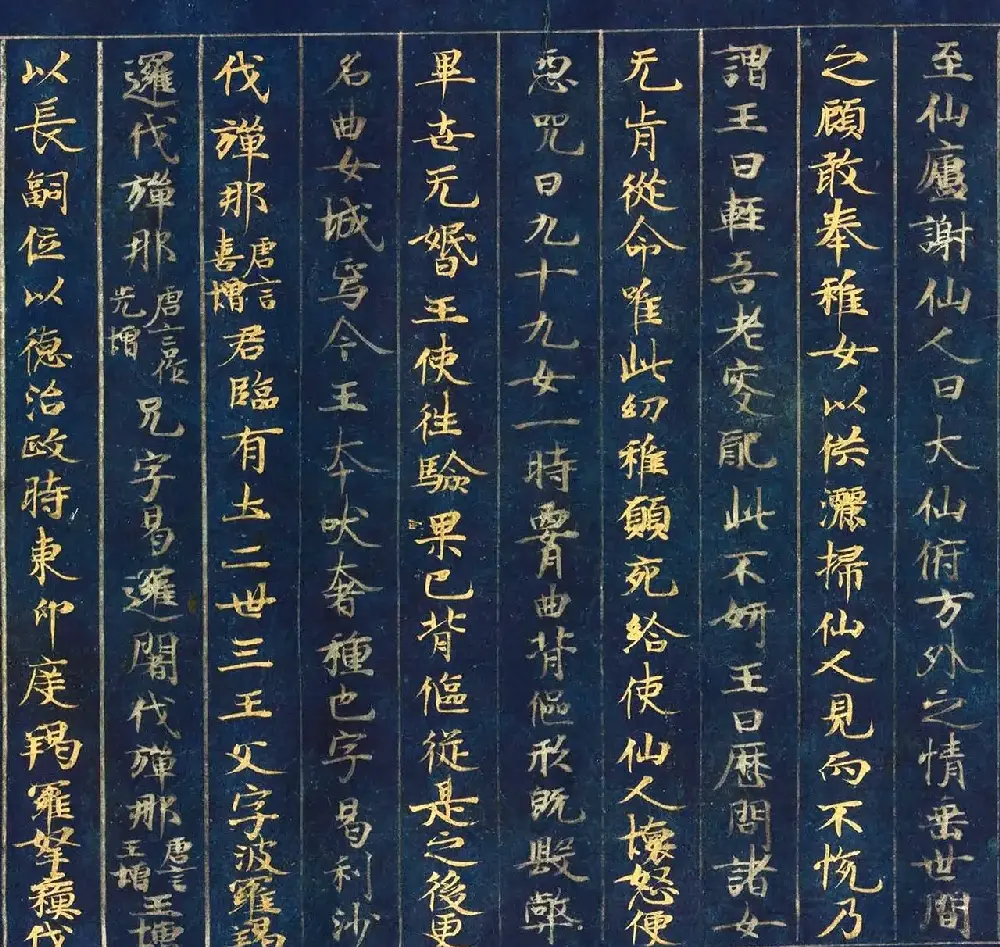 至仙廬謝仙人曰大仙俯方外之情垂世間
之顧敢奉稚女以供灑掃仙人見而不悅乃
謂王曰輕吾老叟配此不妍王曰歷問諸女
无肯從命唯此幼稚願充給使仙人懷怒便
惡咒曰九十九女一時霄曲背傴形旣毀弊
畢世无婚王使往驗果已背傴從是之後更
名曲女城焉今王本吠奢種也字曷利沙
伐彈那唐言喜增君臨有土二世三王父字波羅羯
邏伐彈那唐言作光增兄字曷邏闍伐彈那唐言王增王增
以長嗣位以德治政時東印度羯羅拏蘇伐